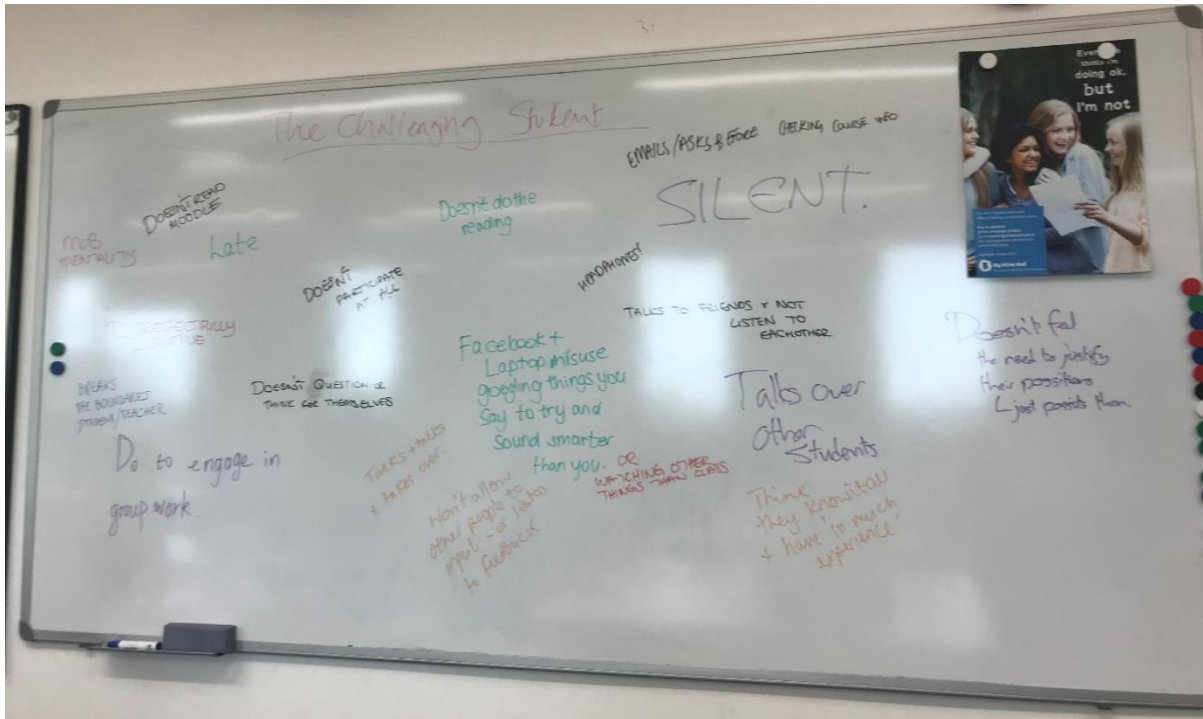 The Challenging Student
EMAILS/ASKS BEFORE CHECKING COURSE INFO
SILENT.
DOESN'T READ
MOODLE
MOB
MENTALITY
Late
Doesn't do the
reading
HEADPHONES!
DOESN'T
PARTICIPATE
AT ALL
TALKS TO FRIENDS + NOT
LISTEN TO
EACHOTHER
BREAKS
THE BOUNDARIES
STUDENT/TEACHER
DOESN'T QUESTION or
THINK FOR THEMSELVES
Facebook +
Laptop misuse
googling things you
Say to try and
Sound smarter
than you.
OR
WATCHING OTHER
THINGS THAN CLASS
Talks over
Other
Students
the need to justify
their possitions
just possits them.
Do to engage in
group work.
Talks + talks
+ takes over.
Won't allow
other people to
input - or listen
to feedback
Think
they know it all
+ have 'so much
experience'
thinks I'm
doing ok,
but
I'm not